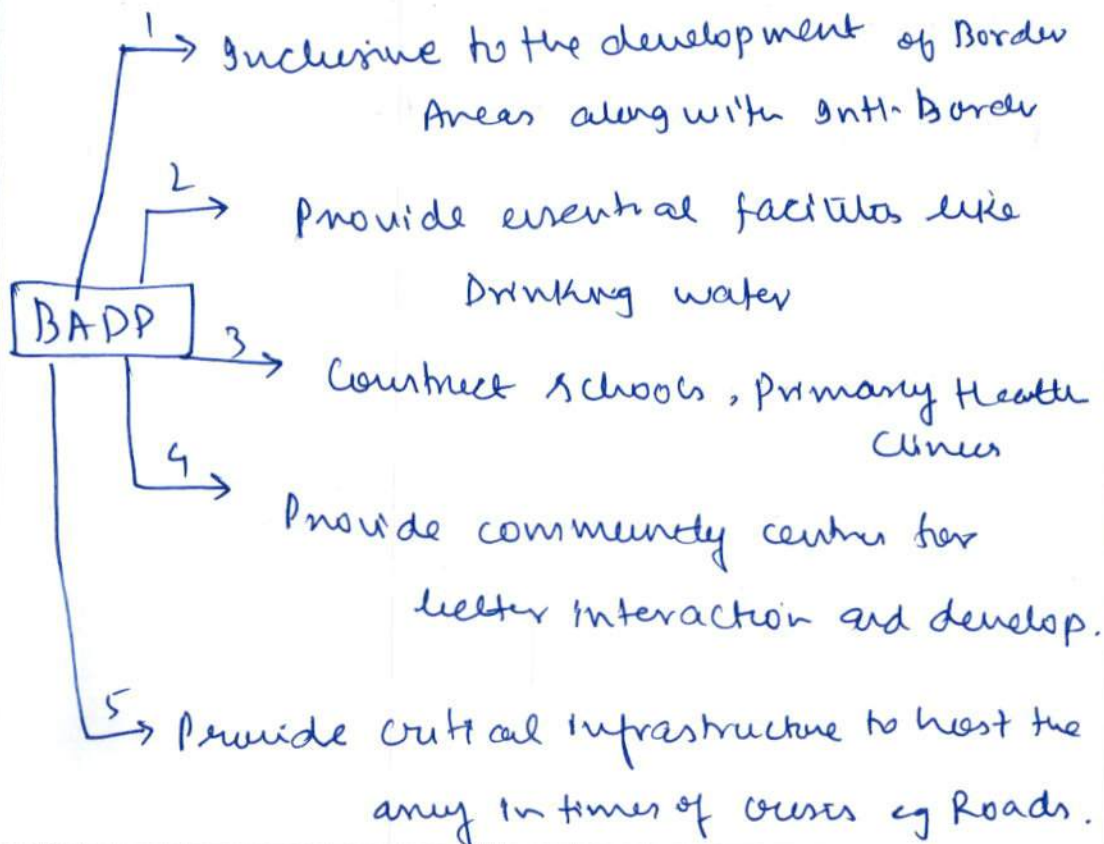 1 → Inclusive to the development of Border
Areas along with Inti-Border
2 → Provide essential facilites like
Drinking water
BADP
3 → Construct schools, Primary Health
Clinics
4 → Provide community centres for
better interaction and develop.
5 → Provide critical infrastructure to host the
army in times of crisis eg Roads.